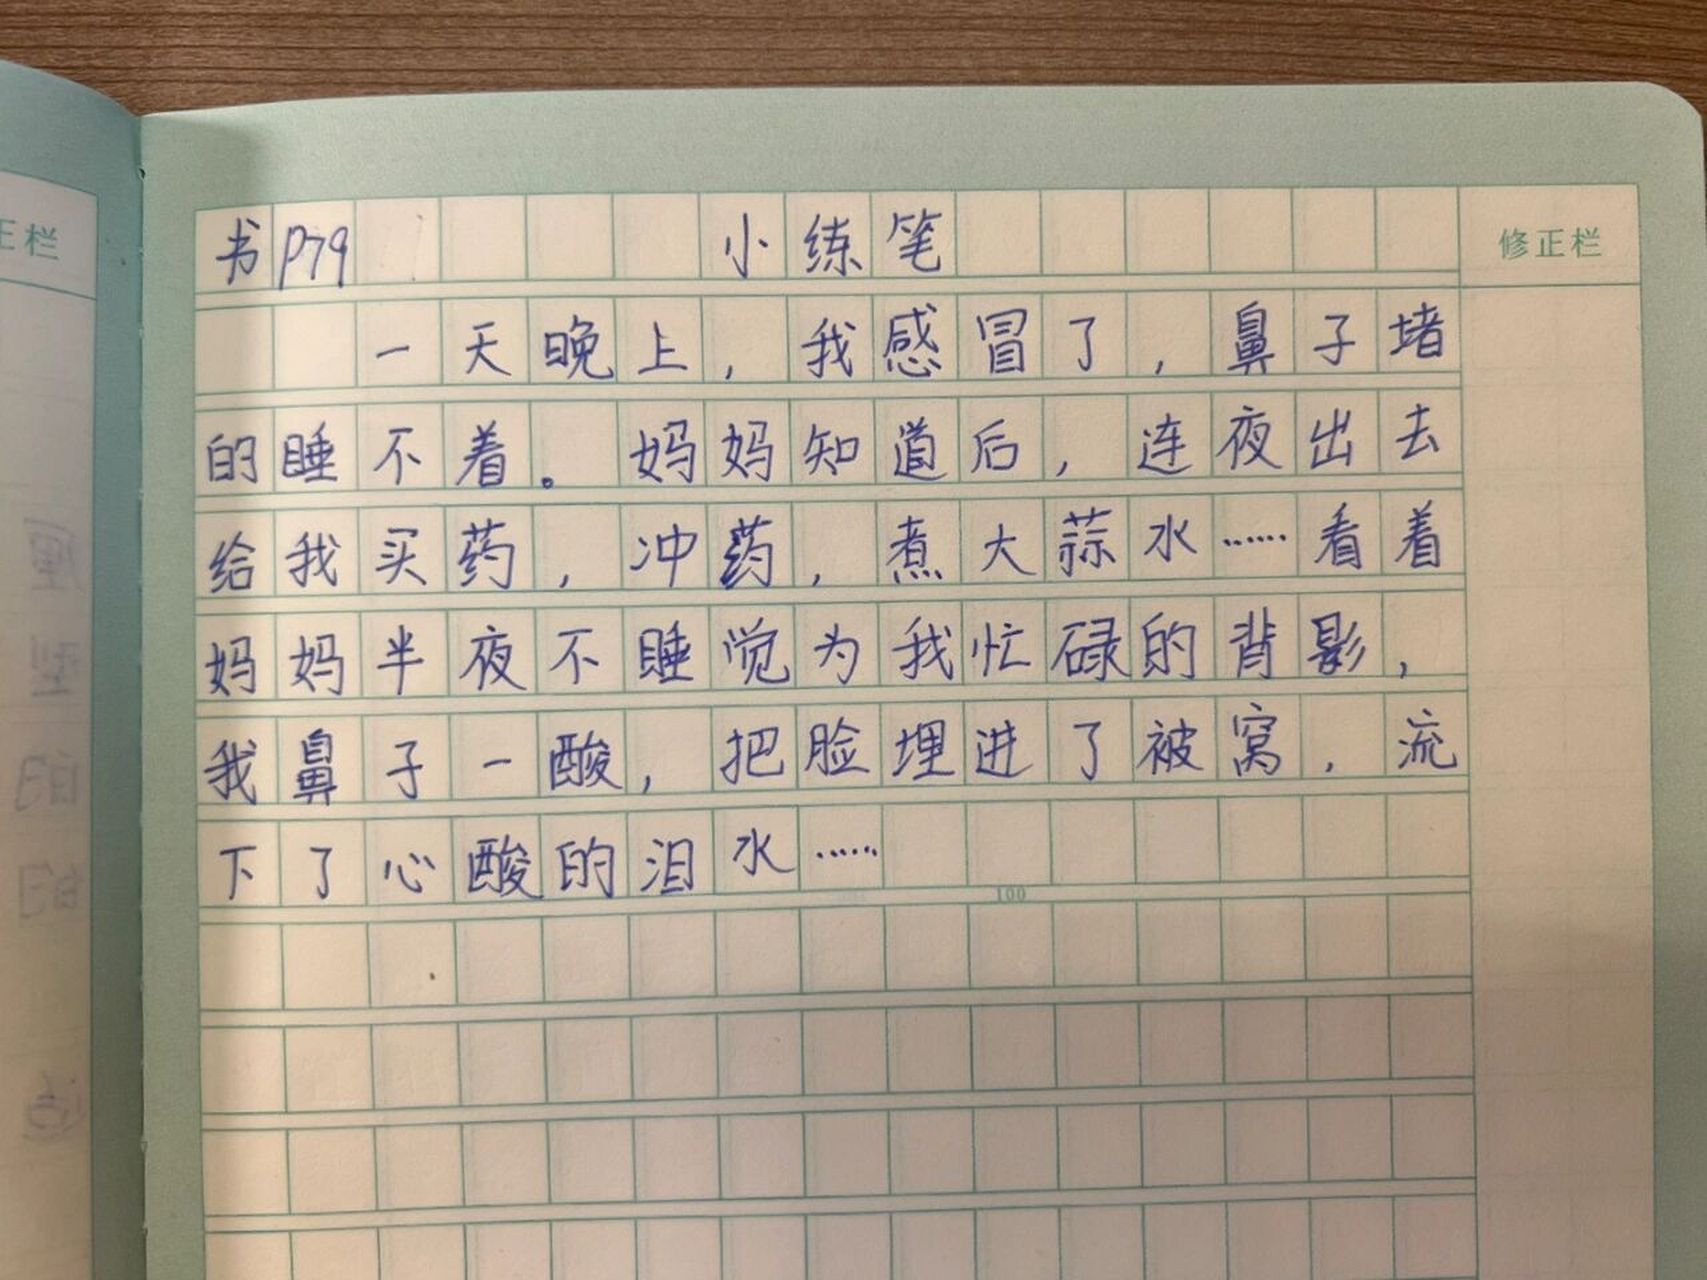 正栏
书P79 小练笔
修正栏
一天晚上，我感冒了，鼻子堵
的睡不着。妈妈知道后，连夜出去
给我买药，冲药，煮大蒜水……看着
妈妈半夜不睡觉为我忙碌的背影，
我鼻子一酸，把脸埋进了被窝，流
下了心酸的泪水……
100